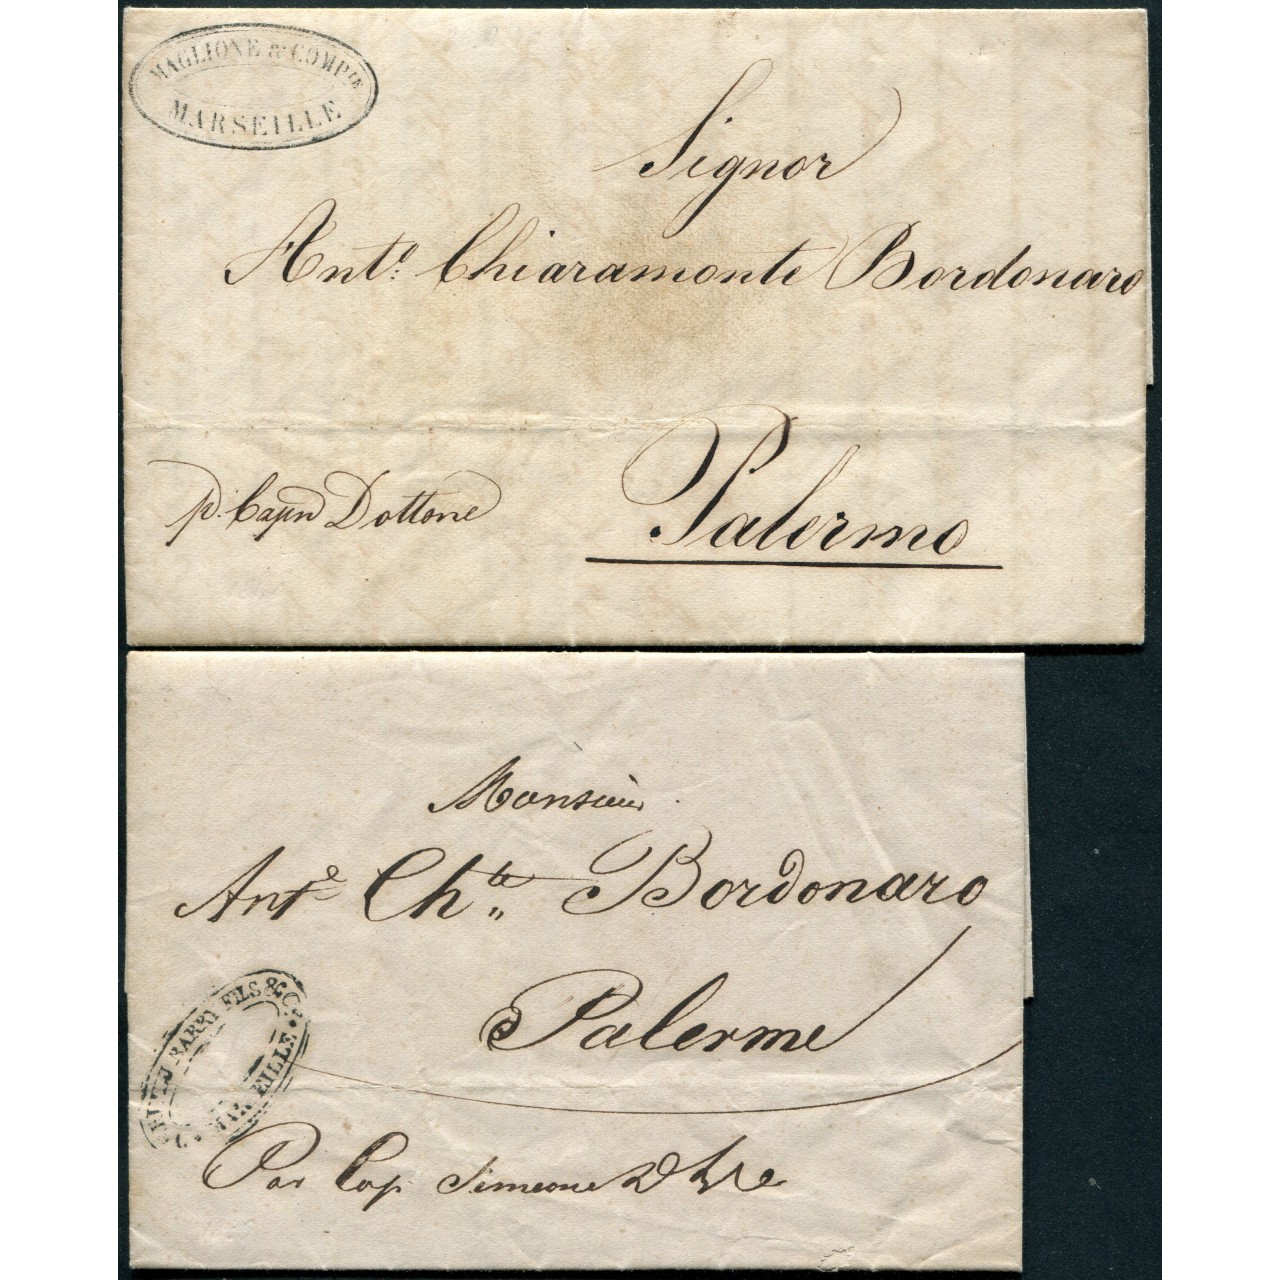 MAGLIONE & COMPIE
MARSEILLE
Signor
Anto. Chiaramonte Bordonaro
Palermo
p. Capn Dottone
Monsieur
Ante Chte Bordonaro
Palerme
BARRY FILS & Co.
MARSEILLE
Par Cap Simeone